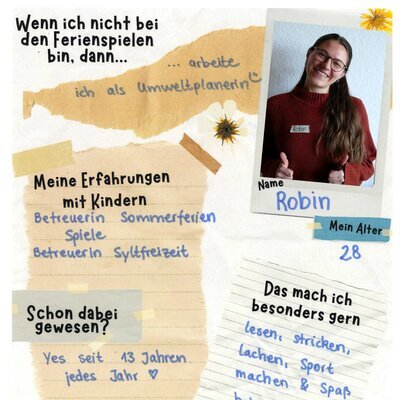 Wenn ich nicht bei
den Ferienspielen
bin, dann...
... arbeite
ich als Umweltplanerin
Robin
Name
Robin
Mein Alter
28
Meine Erfahrungen
mit Kindern
Betreuerin Sommerferien
Spiele
Betreuerin Syltfreizeit
Schon dabei
gewesen?
Yes seit 13 Jahren
jedes Jahr ♡
Das mach ich
besonders gern
lesen, stricken,
lachen, Sport
machen & Spaß